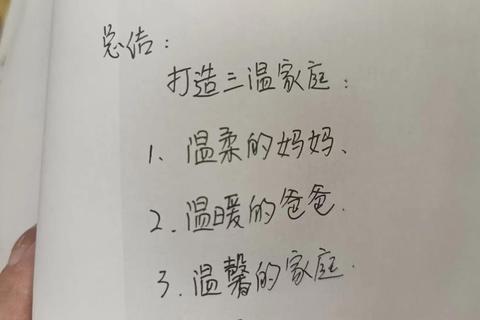 总结：
打造三温家庭：
1、温柔的妈妈、
2.温暖的爸爸.
3.温馨的家庭.